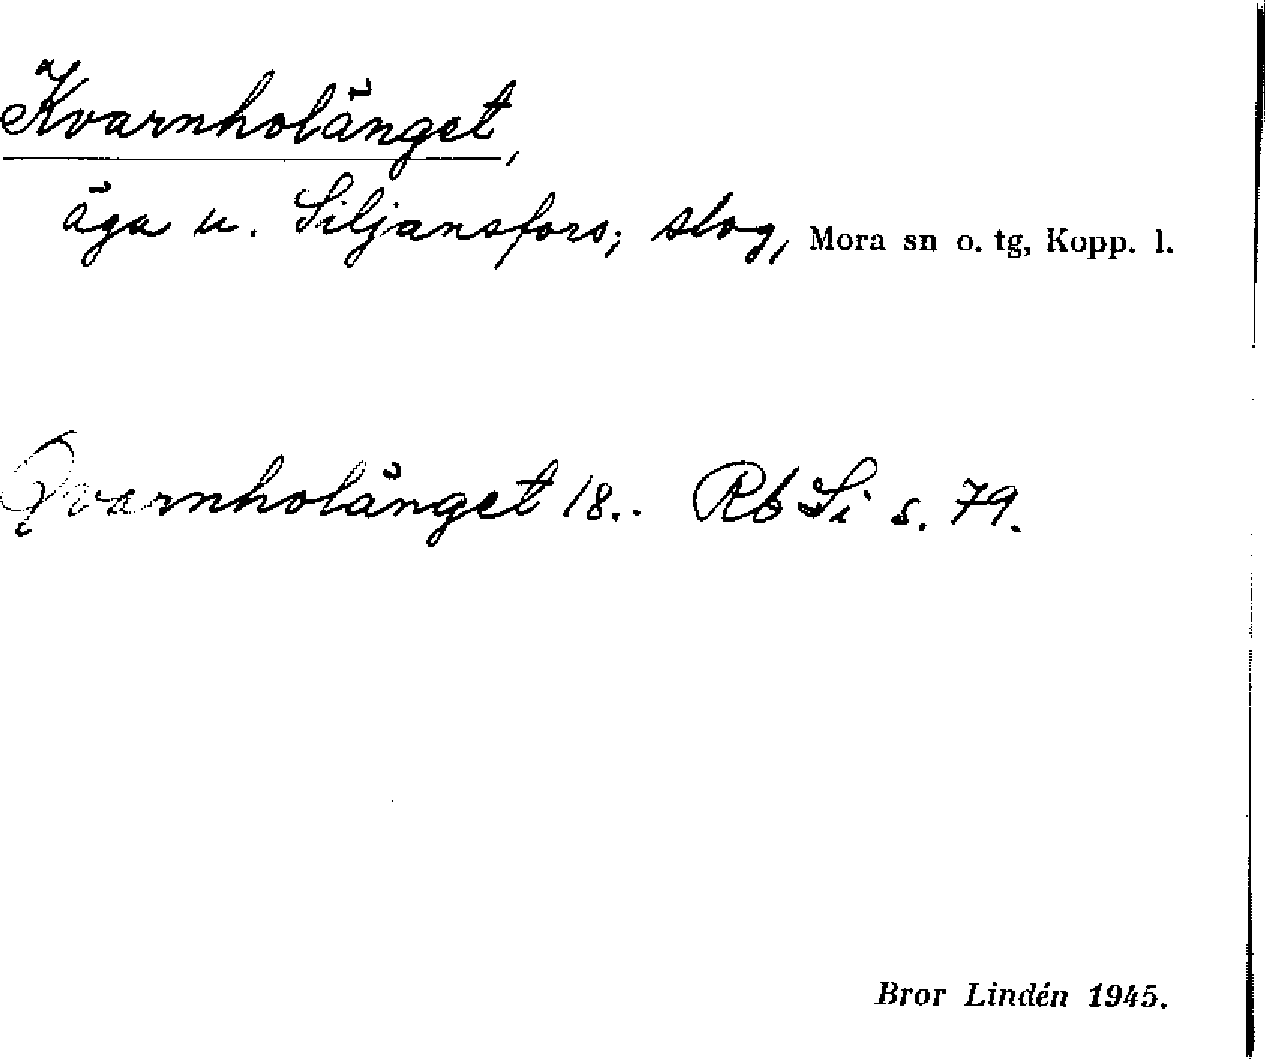 Kvarnholänget,
äga u. Siljansfors; slog, Mora sn o. tg, Kopp. l.
Qvarnholänget 18.. Rb Si s. 79.
Bror Lindén 1945.